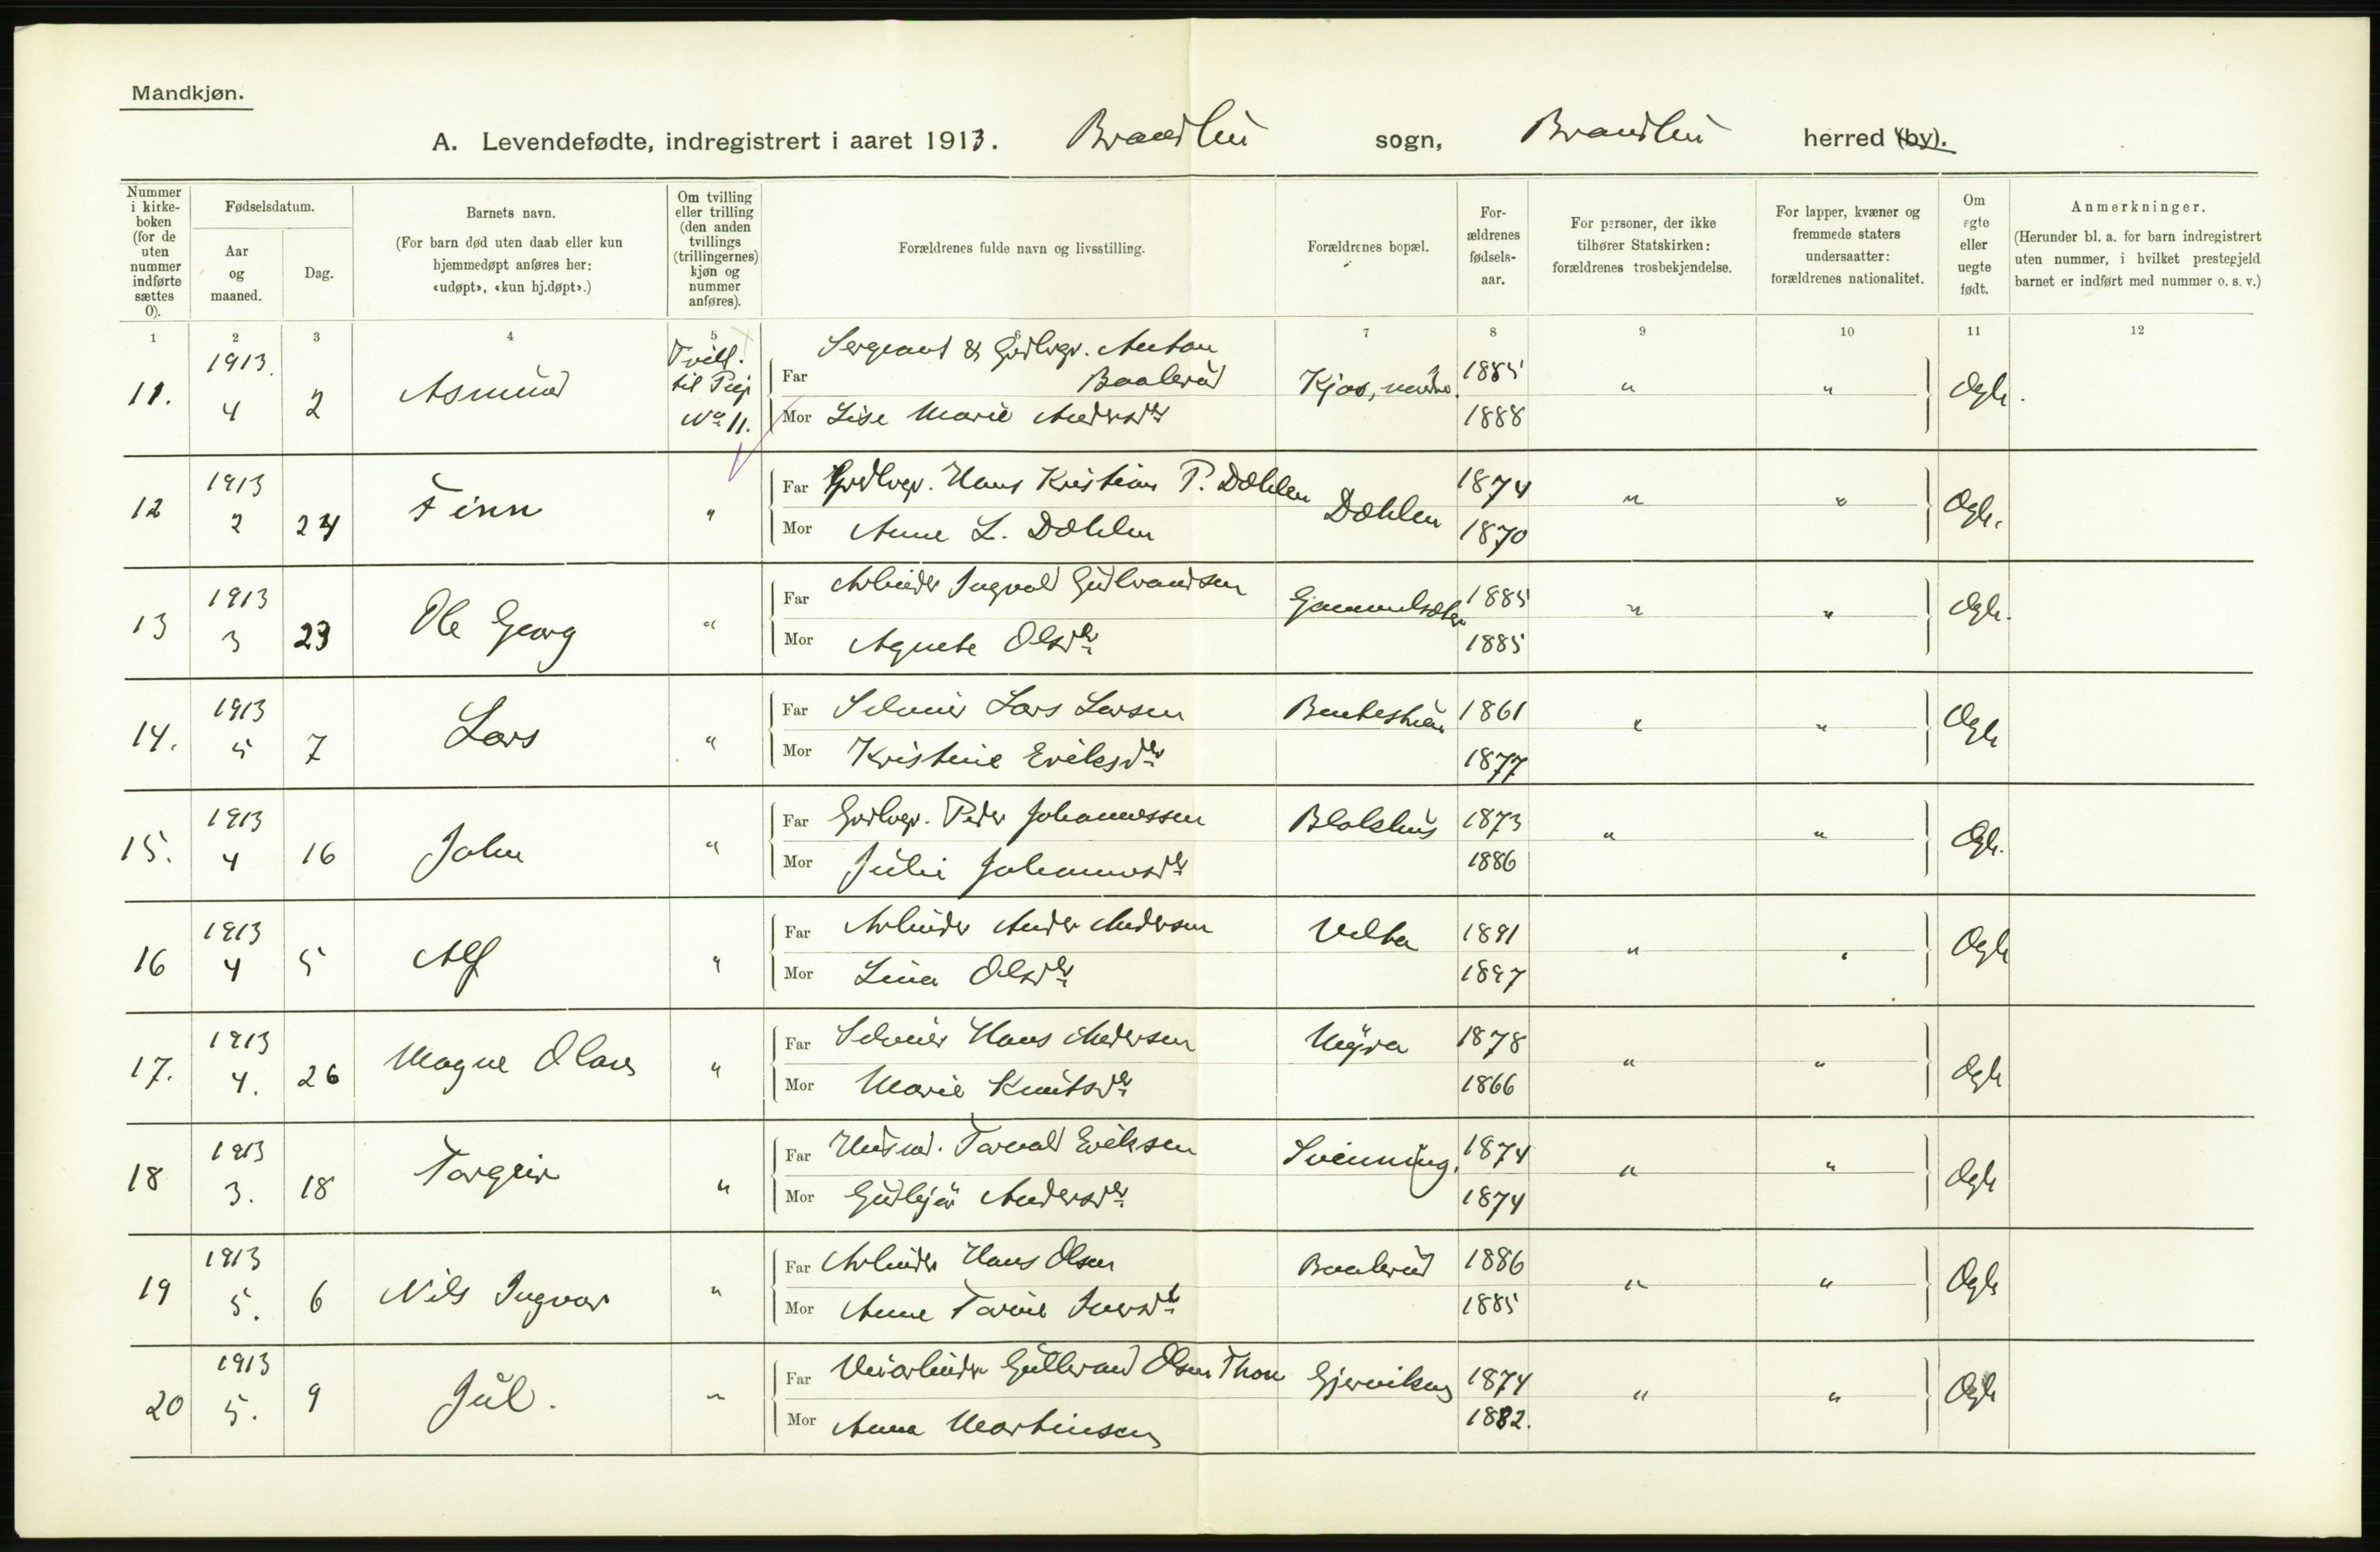 Mandkjøn.
A. Levendefødte, indregistrert i aaret 1913. Brandbu sogn, Brandbu herred (by).
Nummer i kirke- boken (for de uten nummer indførte sættes 0).
Fødselsdatum.
Aar og maaned.
Dag.
Barnets navn.
(For barn død uten daab eller kun hjemmedøpt anføres her: «udøpt», «kun hj.døpt».)
Om tvilling eller trilling (den anden tvillings (trillingernes) kjøn og nummer anføres).
Forældrenes fulde navn og livsstilling.
Forældrenes bopæl.
For- ældrenes fødsels- aar.
For personer, der ikke tilhører Statskirken: forældrenes trosbekjendelse.
For lapper, kvæner og fremmede staters undersaatter: forældrenes nationalitet.
Om egte eller uegte født.
Anmerkninger.
(Herunder bl. a. for barn indregistrert uten nummer, i hvilket prestegjeld barnet er indført med nummer o. s. v.)
1 2 3 4 5 6 7 8 9 10 11 12
11. 1913. 4 2 Asmund Tvill. til Pige No 11.
Far Sergeant & Grdbrgr. Anton Baalerud Kjos, 1885 " " Ægte.
Mor Lise Marie Andersdtr 1888
12 1913 2 24 Finn "
Far Grdbrgr. Hans Kristian P. Dæhlen Dæhlen 1874 " " Ægte.
Mor Anne L. Dæhlen 1870
13 1913 3 23 Ole Georg "
Far Arbeider Ingvald Gudbrandsen Gammelsæter 1885 " " Ægte.
Mor Agnete Olsdtr 1885
14. 1913 5 7 Lars "
Far Selveier Lars Larsen 1861 " " Ægte
Mor Kristine Eriksdtr 1877
15. 1913 4 16 John "
Far Grdbrgr. Peder Johannessen Blakshus 1873 " " Ægte.
Mor Julie Johannesdtr 1886
16 1913 4 5 Alf "
Far Arbeider Anders Andersen Velta 1891 " " Ægte
Mor Lina Olsdtr 1897
17. 1913 4. 26 Magne Olaves "
Far Selveier Hans Andersen Myra 1878 " " Ægte
Mor Marie Knutsdtr 1866
18 1913 3. 18 Torgeir "
Far Husmd. Torvald Eriksen Svenning. 1874 " " Ægte
Mor Gudbjør Andersdtr 1874
19 1913 5. 6 Nils Ingvar "
Far Arbeider Hans Olsen Baalerud 1886 " " Ægte
Mor Anne Torine Iversdtr 1885
20 1913 5. 9 Jul. "
Far Veiarbeider Gulbrand Olsen Thon Gjerviken 1874 " " Ægte
Mor Anna Martinsen 1882.